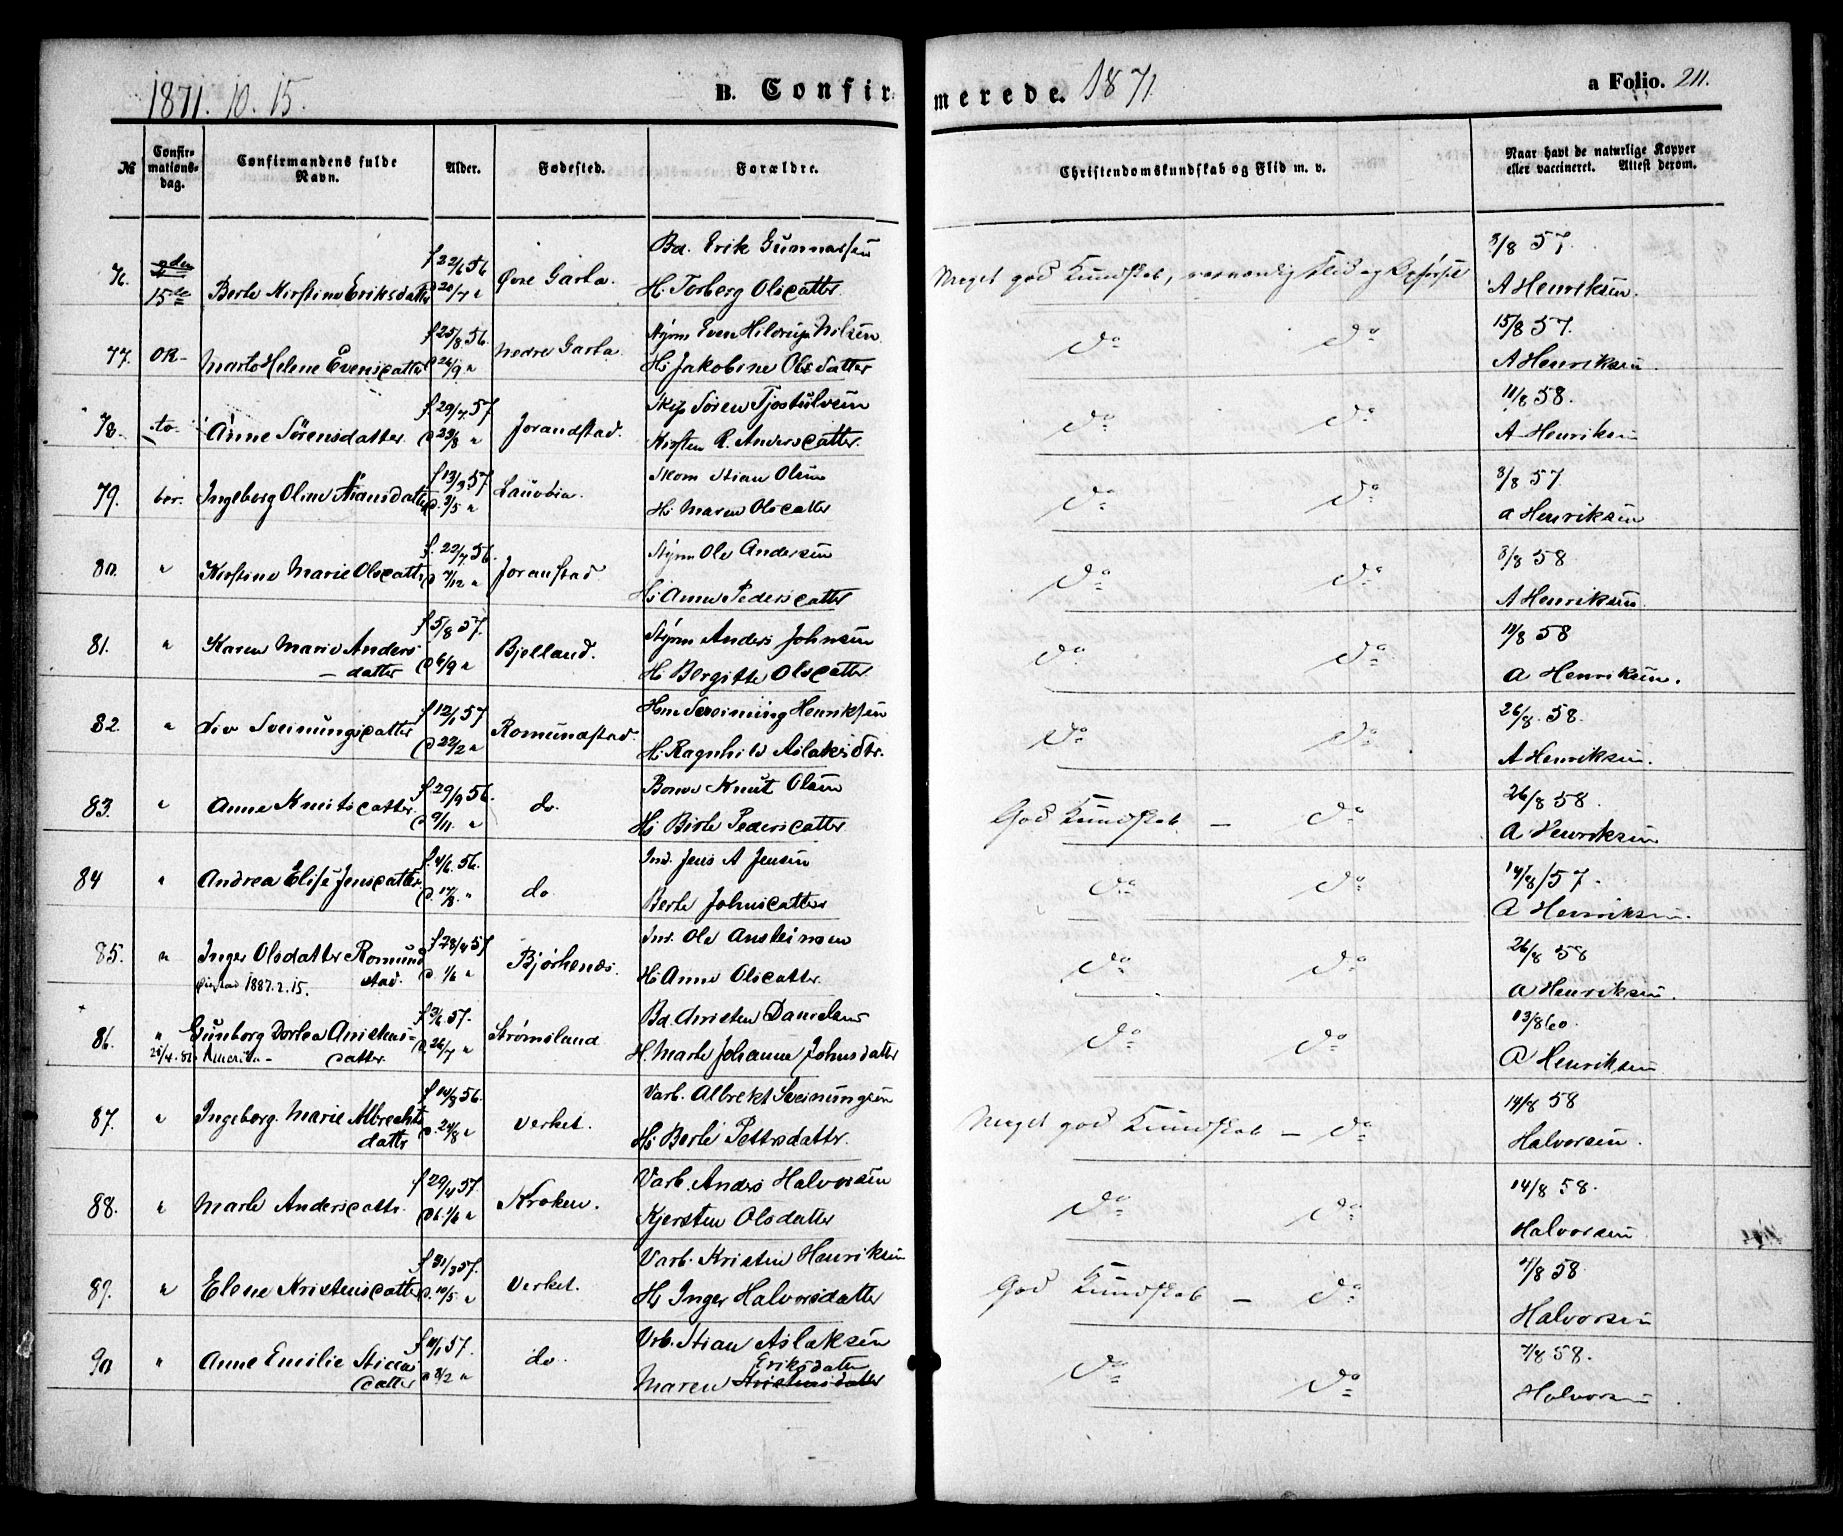 1871. 10. 15.
B. Confirmerede. 1871
a Folio. 211.
№ Confirmationsdag. Confirmandens fulde Navn. Alder. Fødested. Forældre. Christendomskundskab og Flid m. v. Naar havt de naturlige Kopper eller vaccineret. Attest derom.
f 22/6 56 Bd. Erik Gunnarsen 3/8 57.
76. 15de Berte Kirstine Eriksdatter Øvre Garta. H. Torberg Olsdatter Meget god Kundskab, Flid og Opførsel A Henriksen.
f 25/8 56. Styrm Even Hildrup Nilsen 15/8 57.
77. Ok- Marte Helene Evensdatter Nedre Garta. H. Jakobine Olsdatter do do A Henriksen
f. 29/7 57 Skip Søren Tjostulvsen 11/8 58.
78. to- Anne Sørensdatter d 23/8 " Jorandstad. Kirsten R. Andersdatter. do do A Henriksen
f 13/3 57 Skom Stian Olsen 3/8 57.
79. ber. Ingeborg Oline Stiansdatter d. 3/5 " H. Maren Olsdatter do do A Henriksen
f. 22/7 56. Styrm Ole Andersen 3/8 58
80. " Kirstine Marie Olsdatter d 7/12 " Joranstad H. Anne Pedersdatter do do A Henriksen
f 5/8 57. Styrm Anders Johnsen 11/8 58
81. " Karen Marie Anders-datter d 6/9 " Bjelland. H. Bergitte Olsdatter do do A Henriksen.
f 12/1 57 Hm Sveinung Henriksen 26/8. 58.
82. " Siv Sveinungsdatter d 22/2 " Romundstad. H. Ragnhild Aslaksdtr. do do A Henriksen.
f 29/9 56. Knut Olsen 26/8 58.
83. " Anne Knutsdatter d 9/11. " do. H. Birte Pedersdatter God Kundskab. — do A Henriksen
f. 4/6. 56. Ind. Jens A Jensen 14/8/57.
84 " Andrea Elise Jensdatter do Berte Johnsdatter do do A Henriksen.
f 28/4 57 Ind. Ole Ansteinsen 26/8 58
85. " Inger Olsdatter Romundstad. d. 1/6 " Bjørkenæs. H. Anne Olsdatter do do A Henriksen.
1887.2.15.
f 3/6. 57. Bd. Christen Danielsen 13/8 60.
86. " Gunborg Dortea Cristensdatter. d. 26/7 " Strømsland H. Marte Johanne Johnsdatter do do A Henriksen
Amerika-
f 14/3 56. Varb. Albrekt Sveinungsen 14/8 58
87. " Ingeborg Marie Albrechtsdatter d. 24/8 " Verket. H. Berte Pettersdatter. Meget god Kundskab — do Halvorsen.
f 29/4 57. Varb. Anders Halvorsen 14/8 58.
88. " Marte Andersdattr. d. 1/6 " Kroken. Kjersten Olsdatter do do Halvorsen
f 31/3 57. Varb. Kristen Henriksen 7/8 58
89. " Elene Kristensdatter d. 10/5 " Verket. H. Inger Halvorsdatter God Kundskab — do Halvorsen
f 11/1 57. Vrb. Stian Aslaksen 7/8 58.
90 " Anne Emilie Stiansdatter d 2/2 " do. Maren Kristensdatter Eriksdatter do do Halvorsen